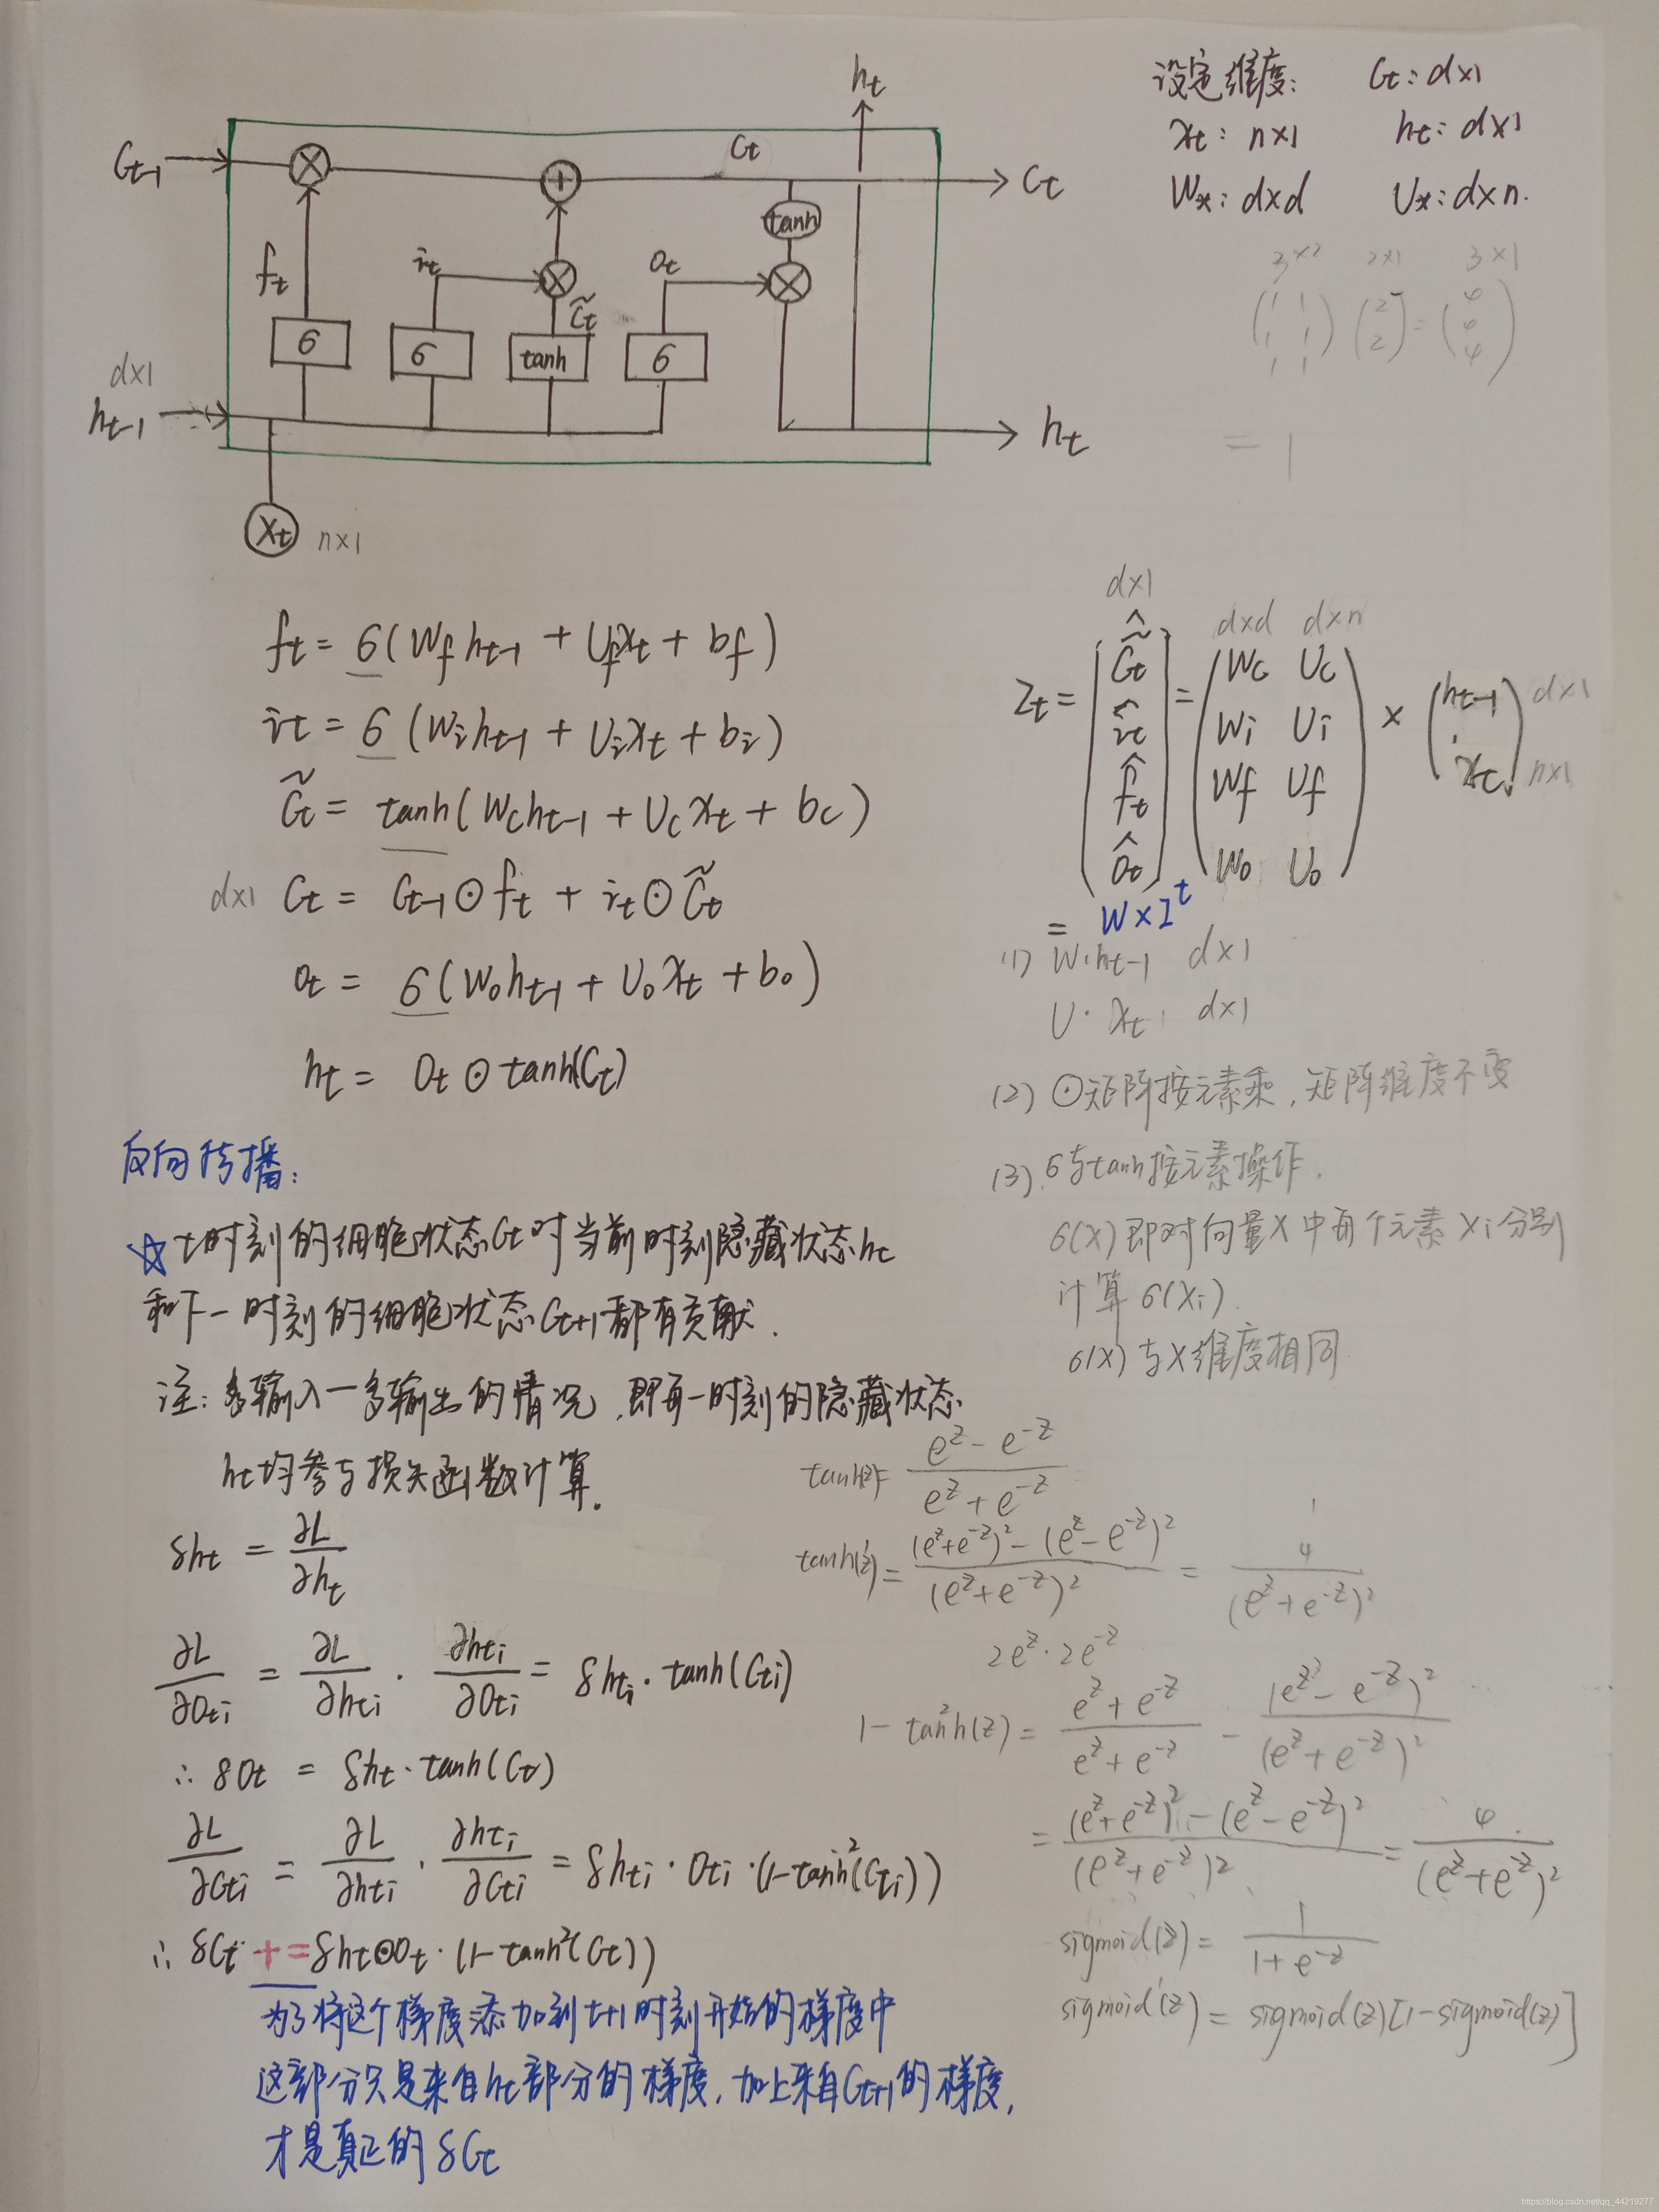 设定维度: Ct: d×1
xt: n×1 ht: d×1
W*: d×d U*: d×n.
3×2 2×1 3×1
(1 1; 1 1; 1 1) (2; 2) = (4; 4; 4)
= 1
ht
Ct-1
Ct
Ct
tanh
ft
it
Ot
C̃t
σ σ tanh σ
d×1
ht-1
ht
Xt n×1
ft = σ(Wf ht-1 + Uf xt + bf)
it = σ(Wi ht-1 + Ui xt + bi)
C̃t = tanh(Wc ht-1 + Uc xt + bc)
d×1 Ct = Ct-1 ⊙ ft + it ⊙ C̃t
Ot = σ(Wo ht-1 + Uo xt + bo)
ht = Ot ⊙ tanh(Ct)
d×1 d×d d×n
Zt = (C̃̂t; ît; f̂t; Ôt) = (Wc Uc; Wi Ui; Wf Uf; Wo Uo) × (ht-1; xt) d×1 n×1
= W×I^t
(1) W·ht-1 d×1
U·xt d×1
(2) ⊙矩阵按元素乘,矩阵维度不变
(3) σ与tanh按元素操作.
σ(X)即对向量X中每个元素Xi分别
计算σ(Xi).
σ(X)与X维度相同
反向传播:
☆ t时刻的细胞状态Ct对当前时刻隐藏状态ht
和下一时刻的细胞状态Ct+1都有贡献.
注: 多输入一多输出的情况,即每一时刻的隐藏状态
ht均参与损失函数计算.
δht = ∂L/∂ht
∂L/∂Oti = ∂L/∂hti · ∂hti/∂Oti = δhti · tanh(Cti)
∴ δOt = δht · tanh(Ct)
∂L/∂Cti = ∂L/∂hti · ∂hti/∂Cti = δhti · Oti · (1-tanh²(Cti))
∴ δCt += δht⊙Ot · (1-tanh²(Ct))
为了将这个梯度添加到t+1时刻开始的梯度中
这部分只是来自ht部分的梯度,加上来自Ct+1的梯度,
才是真正的δCt
tanh(z) = (e^z - e^-z)/(e^z + e^-z)
tanh'(z) = ((e^z+e^-z)² - (e^z-e^-z)²)/(e^z+e^-z)² = 4/(e^z+e^-z)²
2e^z · 2e^-z
1 - tanh²(z) = (e^z + e^-z)/(e^z + e^-z) - (e^z - e^-z)²/(e^z + e^-z)²
= ((e^z+e^-z)² - (e^z-e^-z)²)/(e^z+e^-z)² = 4/(e^z+e^-z)²
sigmoid(z) = 1/(1+e^-z)
sigmoid'(z) = sigmoid(z)[1-sigmoid(z)]
https://blog.csdn.net/qq_44219277